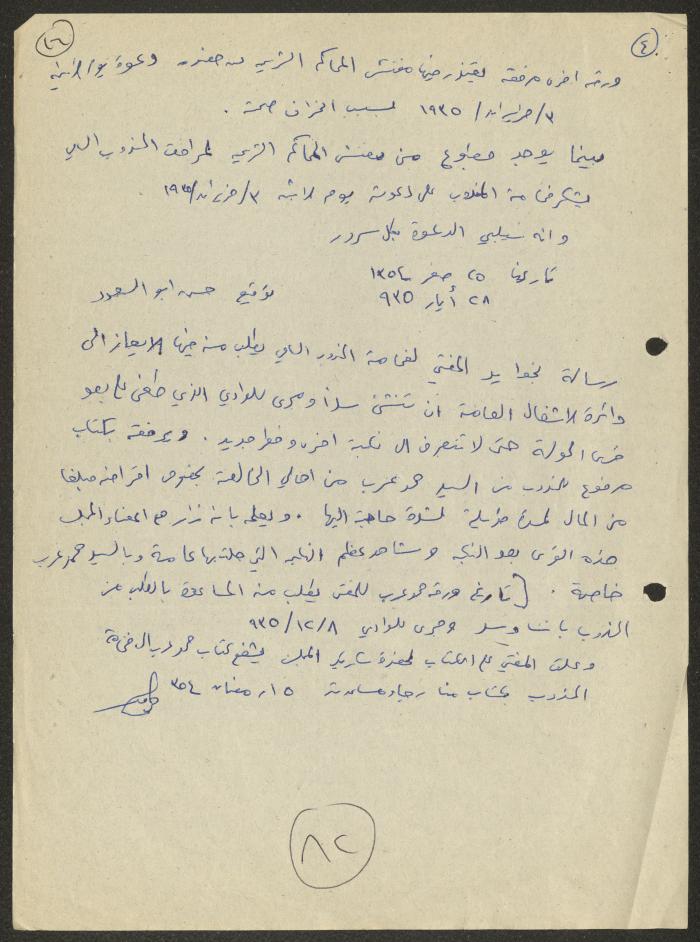 (٤)
(٢٦)
ورقة اخرى مرفقة يعتذر فيها مفتش المحاكم الشرعية عن حضور دعوة يوم الاثنين
٣/حزيران/ ١٩٣٥ بسبب انحراف صحته .
بينما يوجد مطبوع من مفتش المحاكم الشرعية لمرافق المندوب السامي
يشكر فخامة المندوب على دعوته يوم الاثنين ٣/حزيران/١٩٣٥
وانه سيلبي الدعوة بكل سرور
تاريخها ٢٥ صفر ١٣٥٤
٢٨ أيار ٩٣٥ توقيع حسن ابو السعود
رسالة بخط يد المفتي لفخامة المندوب السامي يطلب منه فيها الايعاز الى
دائرة الاشغال العامة ان تنشئ سداً ومجرى للوادي الذي طغى على بعض
قرى الحولة حتى لا تتعرض الى نكبة اخرى وخطر جديد . ويرفقه بكتاب
مرفوع للمندوب من السيد محمد عرب من اهالي الخالصة بخصوص اقراضه مبلغا
من المال لمدة طويلة لشدة حاجته اليها . ويعلمه بانه زار مع اعضاء المجلس
هذه القرى بعد النكبة وشاهد عظم النكبة التي حلت بها عامة وبالسيد محمد عرب
خاصة . [تاريخ ورقة محمد عرب للمفتي يطلب منه المساعدة بالطلب من
المندوب بانشاء سد ومجرى للوادي ٩٣٥/١٢/٨
وعلق المفتي على الكتاب لحضرة سكرتير المجلس يشفع كتاب محمد عرب الى فخامة
المندوب بكتاب منا رجاء مساعدته ١٥ رمضان ٣٥٤
٨٢